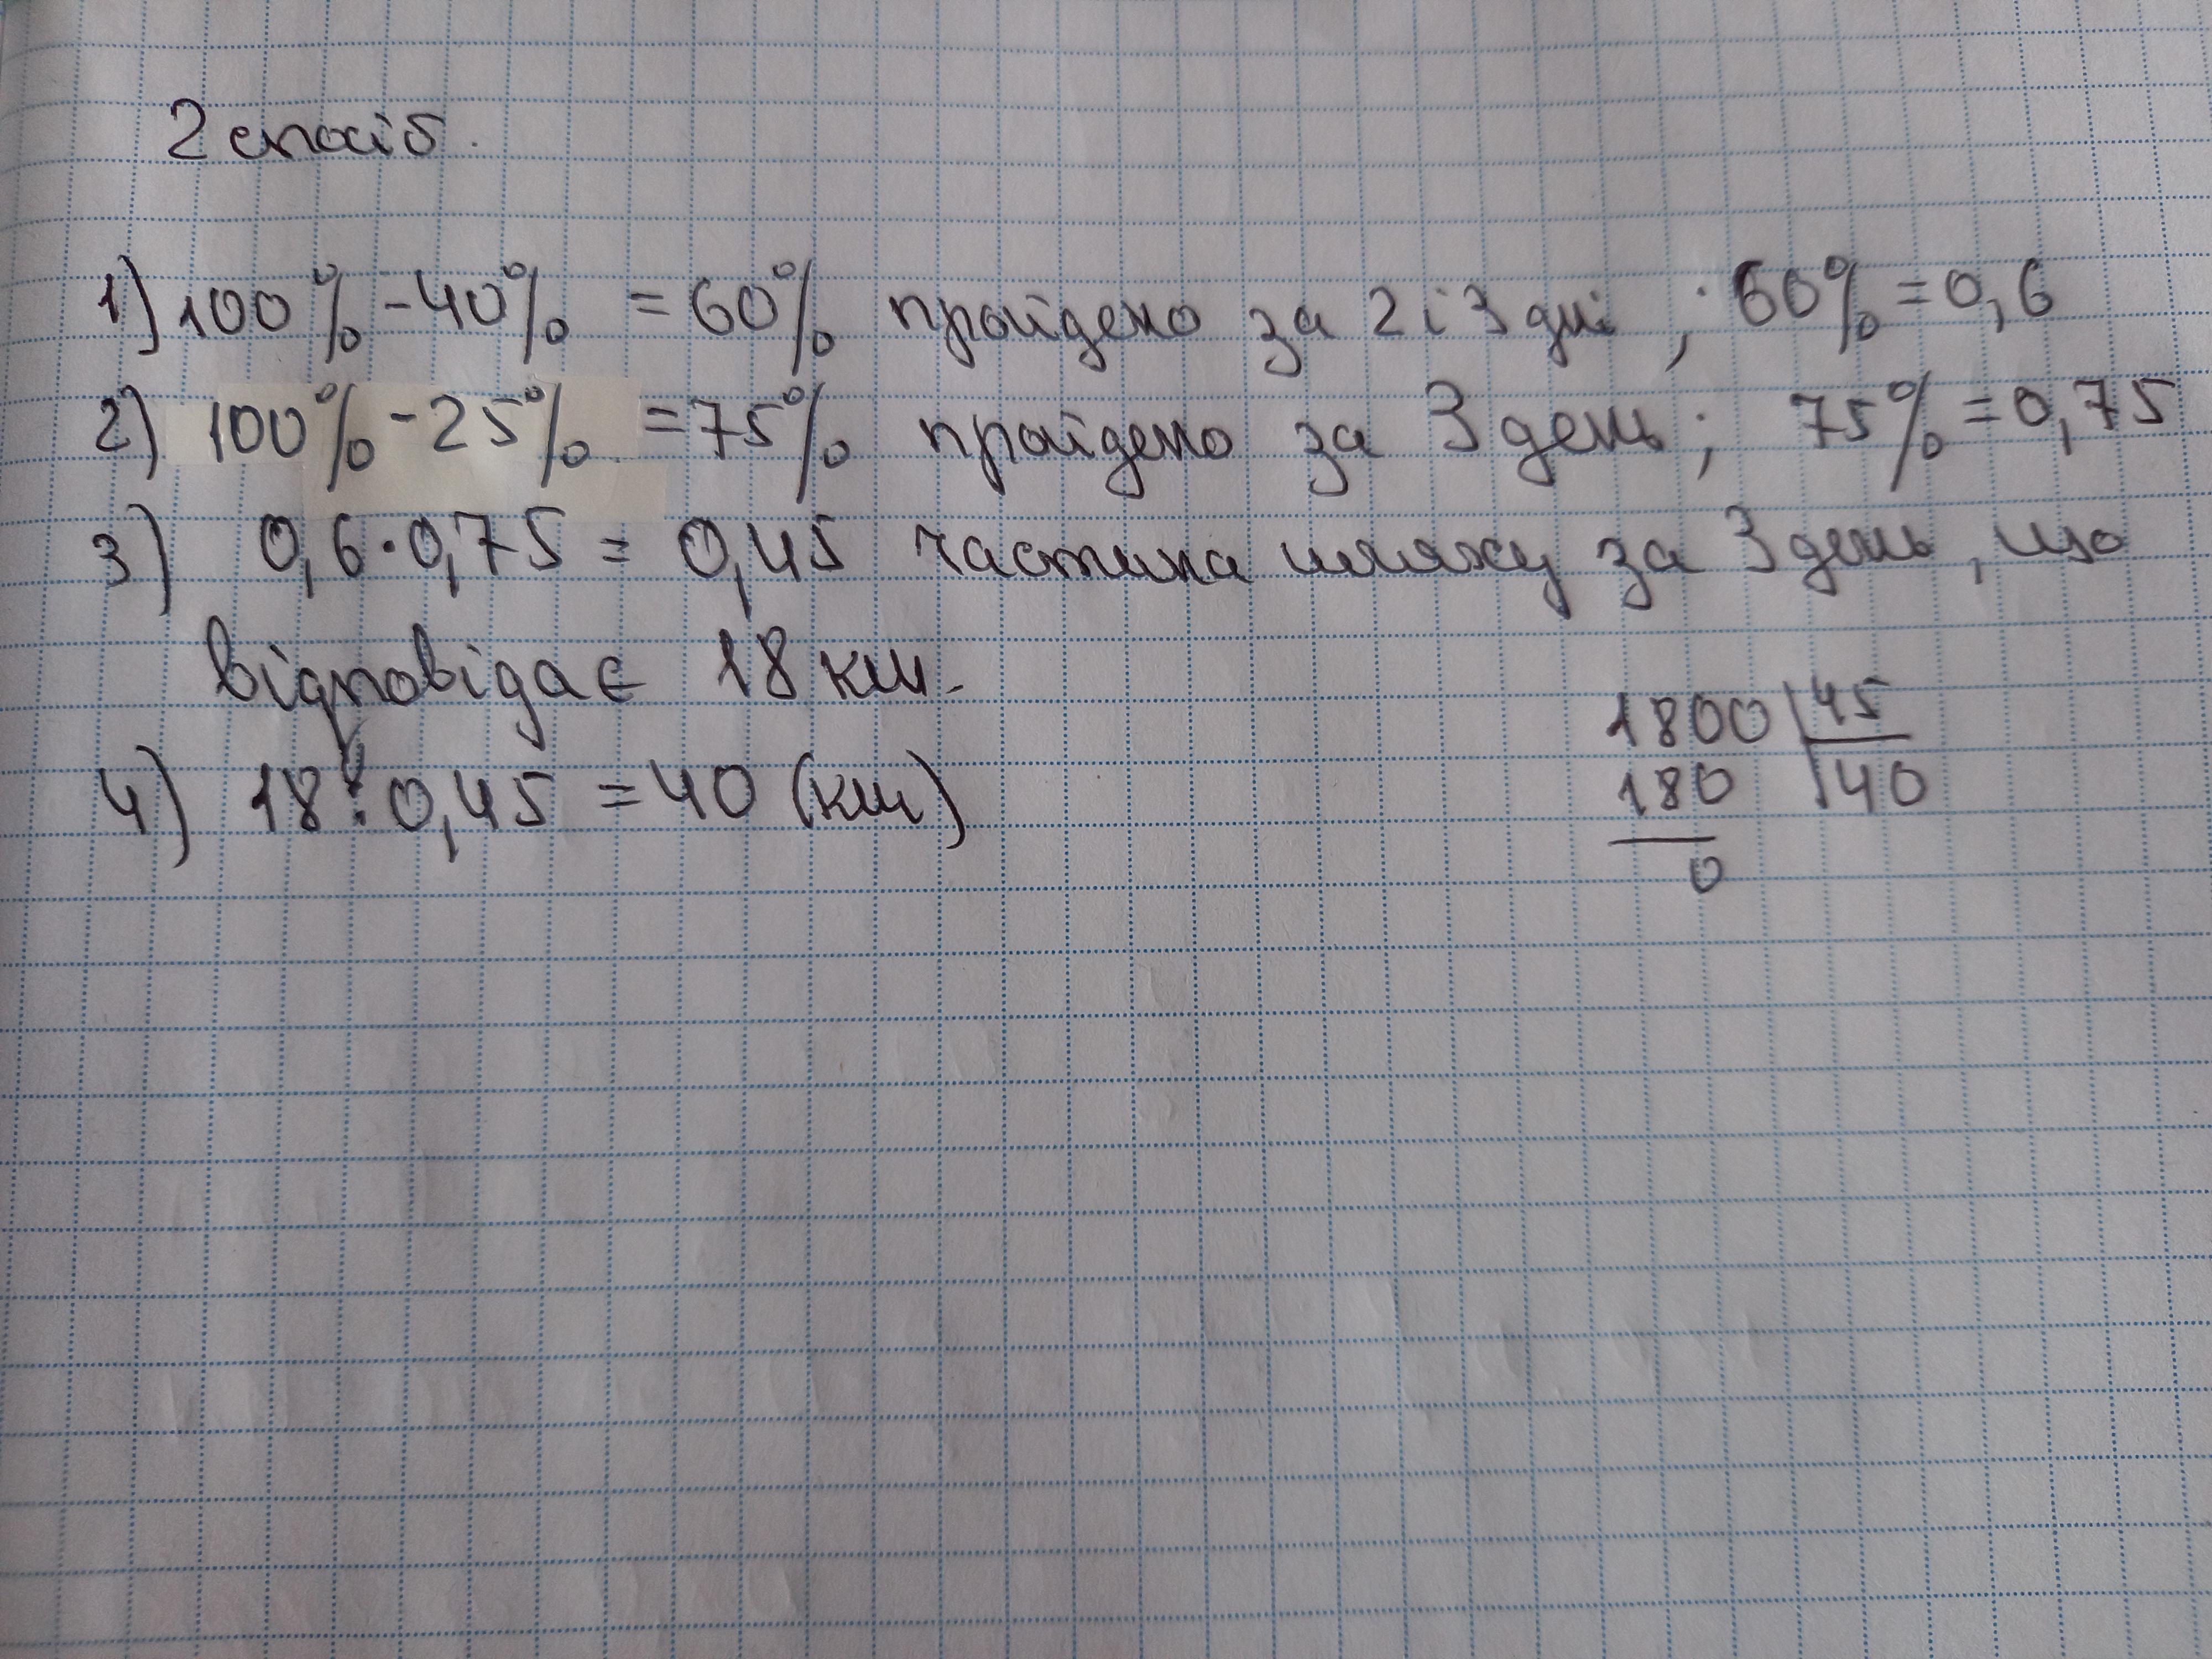 2 спосіб.
1) 100% - 40% = 60% пройдено за 2 і 3 дні ; 60% = 0,6
2) 100% - 25% = 75% пройдено за 3 день ; 75% = 0,75
3) 0,6 · 0,75 = 0,45 частина шляху за 3 день, що
відповідає 18 км.
4) 18 : 0,45 = 40 (км)
1800 | 45
180 | 40
0